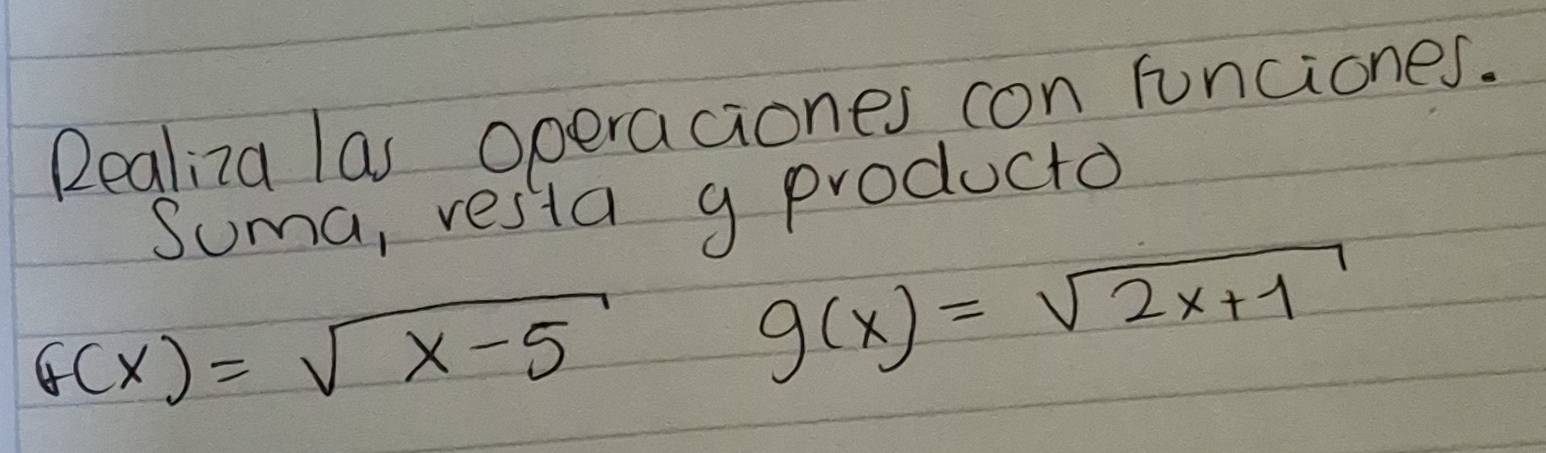 Realiza las operaciones con funciones.
Suma, resta y producto
f(x) = √x-5 g(x) = √2x+1